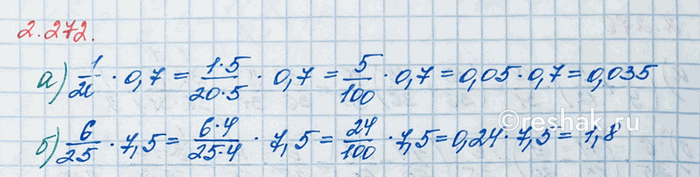 2.272.
а) 1/20 · 0,7 = 1·5/20·5 · 0,7 = 5/100 · 0,7 = 0,05·0,7 = 0,035
б) 6/25 · 7,5 = 6·4/25·4 · 7,5 = 24/100 · 7,5 = 0,24 · 7,5 = 1,8
©reshak.ru